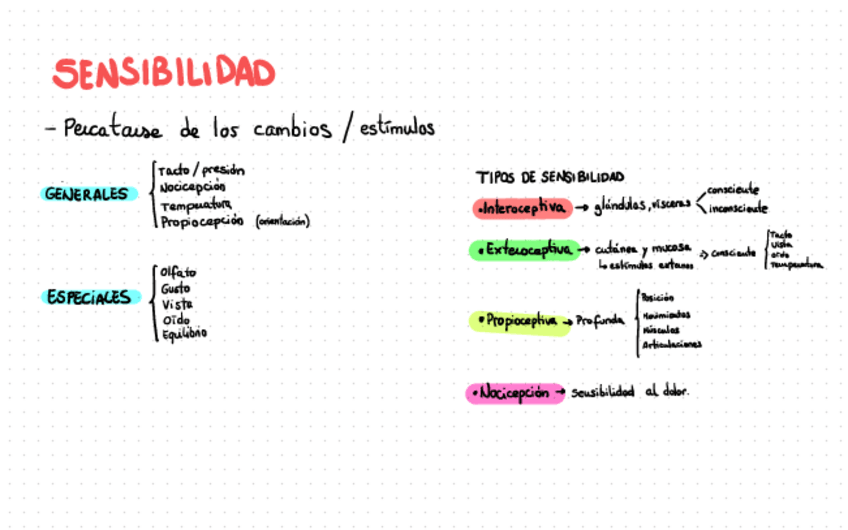 SENSIBILIDAD
- Percatarse de los cambios / estímulos
GENERALES
Tacto / presión
Nocicepción
Temperatura
Propiocepción (orientación)
ESPECIALES
Olfato
Gusto
Vista
Oído
Equilibrio
TIPOS DE SENSIBILIDAD
•Interoceptiva → glándulas, vísceras
consciente
inconsciente
•Exteroceptiva → cutánea y mucosa => consciente
↳ estímulos externos
Tacto
Vista
Oído
Temperatura
•Propioceptiva → Profunda
Posición
Movimientos
Músculos
Articulaciones
•Nocicepción → sensibilidad al dolor.